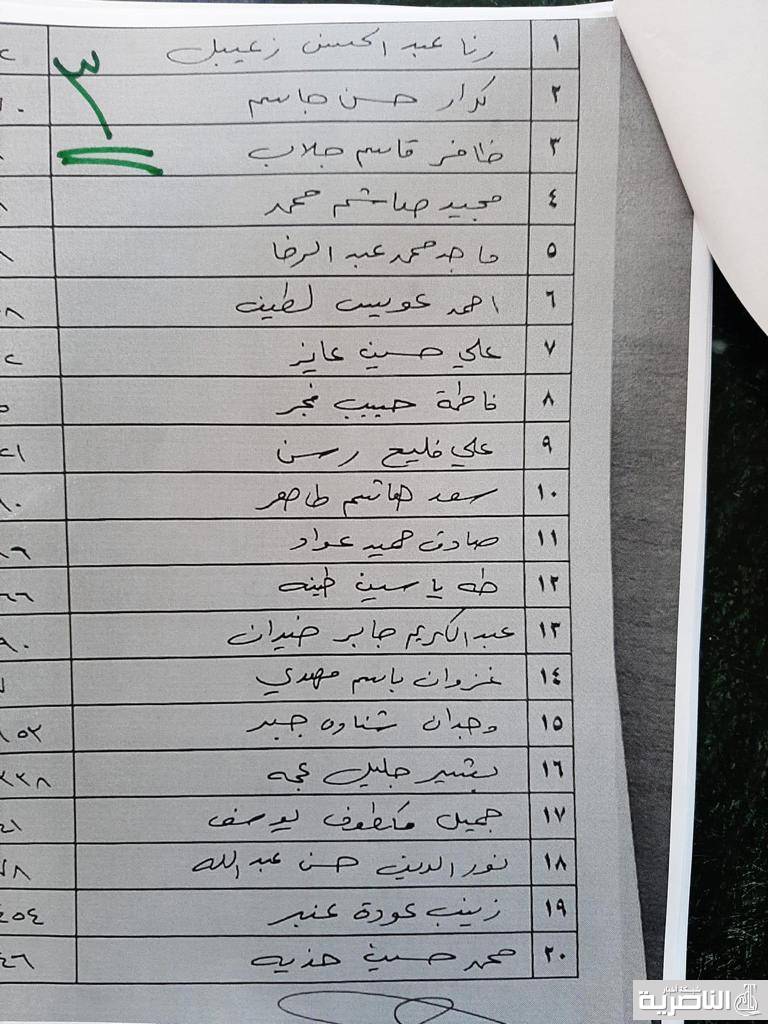 ٣
١ رنا عبد الحسن زغيبل
٢ كرار حسن جاسم
٣ ظافر قاسم جلاب
٤ مجيد هاشم محمد
٥ ماجد محمد عبد الرضا
٦ احمد عويب لطيف
٧ علي حسين عايز
٨ فاطمة حبيب فجر
٩ علي فليح رسن
١٠ سعد هاشم طاهر
١١ صادق حميد عواد
١٢ طه ياسين طينه
١٣ عبد الكريم جابر خيران
١٤ غزوان باسم مهدي
١٥ وجدان شناوه جبر
١٦ بشير جليل عجه
١٧ جميل مكطوف يوسف
١٨ نور الدين حسن عبد الله
١٩ زينب عودة عنبر
٢٠ محمد حسين هذيه
شبكة أخبار الناصرية